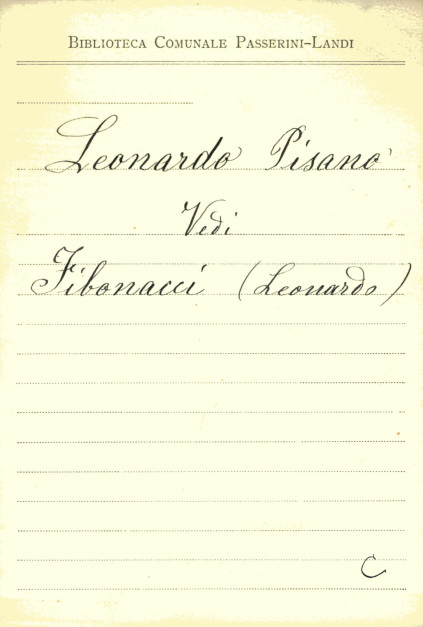 Biblioteca Comunale Passerini-Landi
Leonardo Pisano
Vedi
Fibonacci (Leonardo)
C